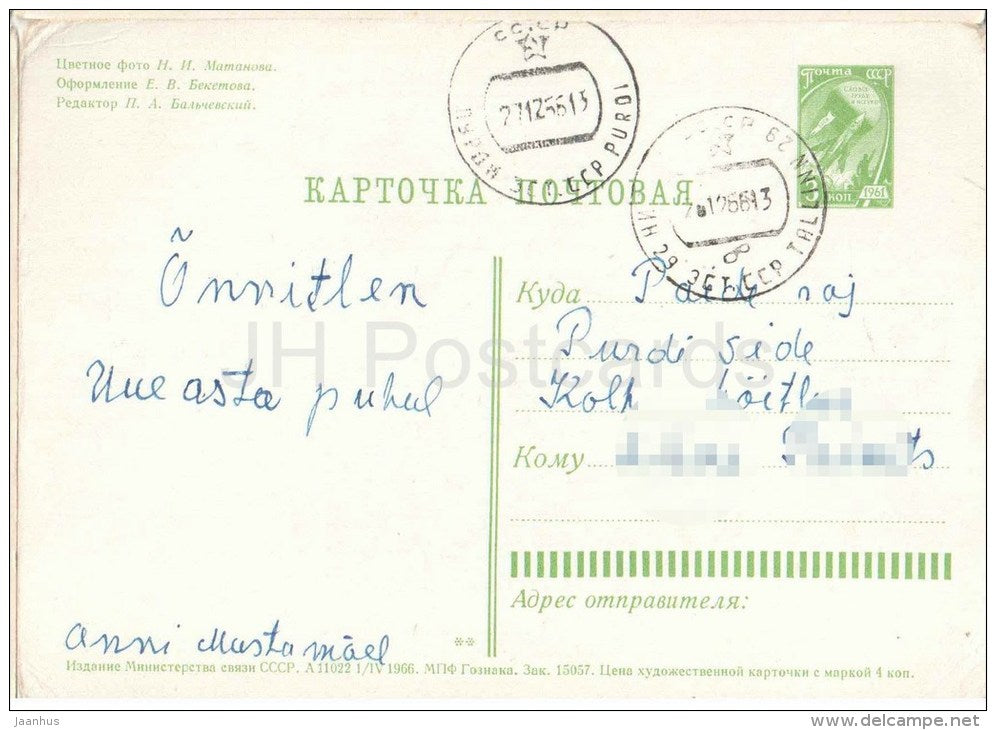 Цветное фото Н. И. Матанова.
Оформление Е. В. Бекетова.
Редактор П. А. Бальчевский.
СССР
27126613
PURDI
ЭСТ.ССР
ПОЧТА СССР
1961
КОП
КАРТОЧКА ПОЧТОВАЯ
TALLINN 29
ЭСТ.ССР
8
Õnnitlen
Uue asta puhul
Куда Paide raj
Purdi side
Кому
Адрес отправителя:
Anni Mustamäel
**
Издание Министерства связи СССР. А 11022 1/IV 1966. МПФ Гознака. Зак. 15057. Цена художественной карточки с маркой 4 коп.
JH Postcards
jaanhus
www.delcampe.net